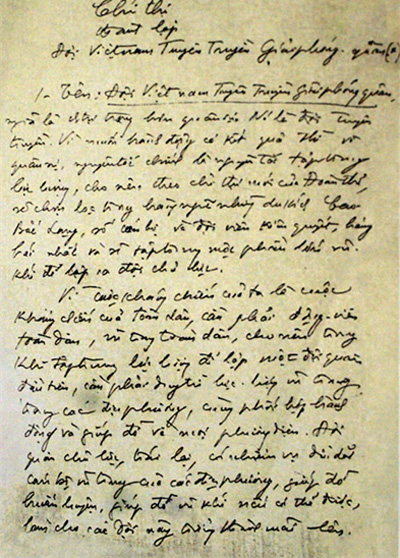 Chỉ thị
thành lập
Đội Việt Nam Tuyên Truyền Giải phóng quân (*)
1- Tên: Đội Việt Nam Tuyên Truyền Giải phóng quân,
nghĩa là chính trị trọng hơn quân sự. Nó là đội tuyên
truyền. Vì muốn hành động có kết quả thì về
quân sự, nguyên tắc chính là nguyên tắc tập trung
lực lượng, cho nên, theo chỉ thị mới của Đoàn thể,
sẽ chọn lọc trong hàng ngũ những du kích Cao
Bắc Lạng, số cán bộ và đội viên kiên quyết, hăng
hái nhất và sẽ tập trung một phần lớn vũ
khí để lập ra đội chủ lực.
Vì cuộc kháng chiến của ta là cuộc
kháng chiến của toàn dân, cần phải động viên
toàn dân, vũ trang toàn dân, cho nên trong
khi tập trung lực lượng để lập một đội quân
đầu tiên, cần phải duy trì lực lượng vũ trang
trong các địa phương, cùng phối hợp hành
động và giúp đỡ về mọi phương diện. Đội
quân chủ lực, trái lại, có nhiệm vụ dìu dắt
cán bộ vũ trang của các địa phương, giúp đỡ
huấn luyện, giúp đỡ vũ khí nếu có thể được,
làm cho các đội này trưởng thành mãi lên.